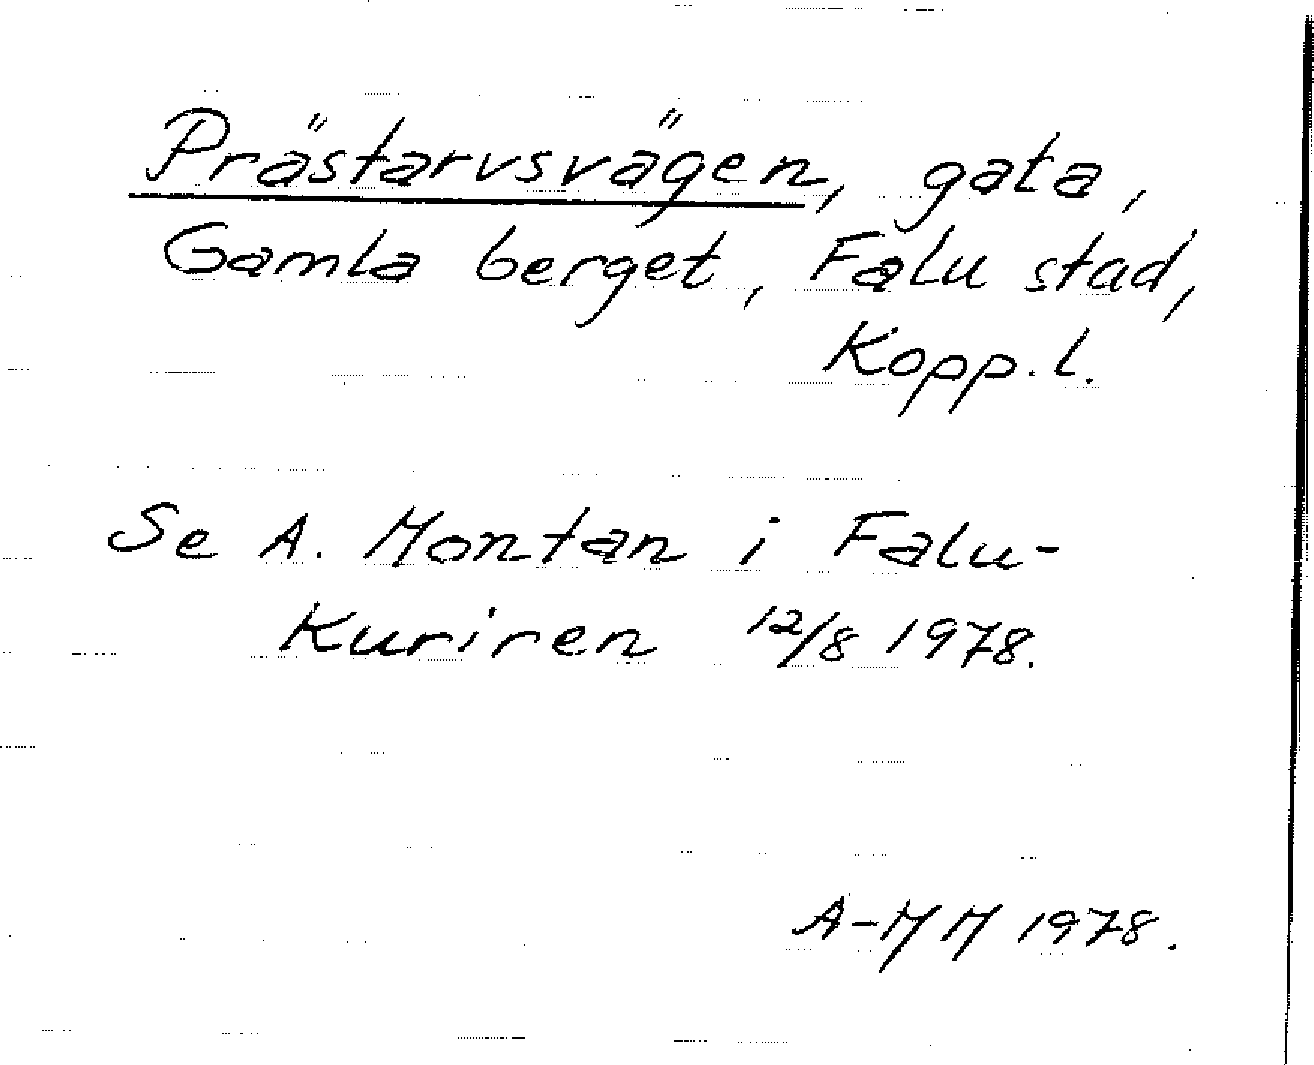 Prästarvsvägen, gata,
Gamla berget, Falu stad,
Kopp. l.
Se A. Montan i Falu-
Kuriren 12/8 1978.
A-MM 1978.